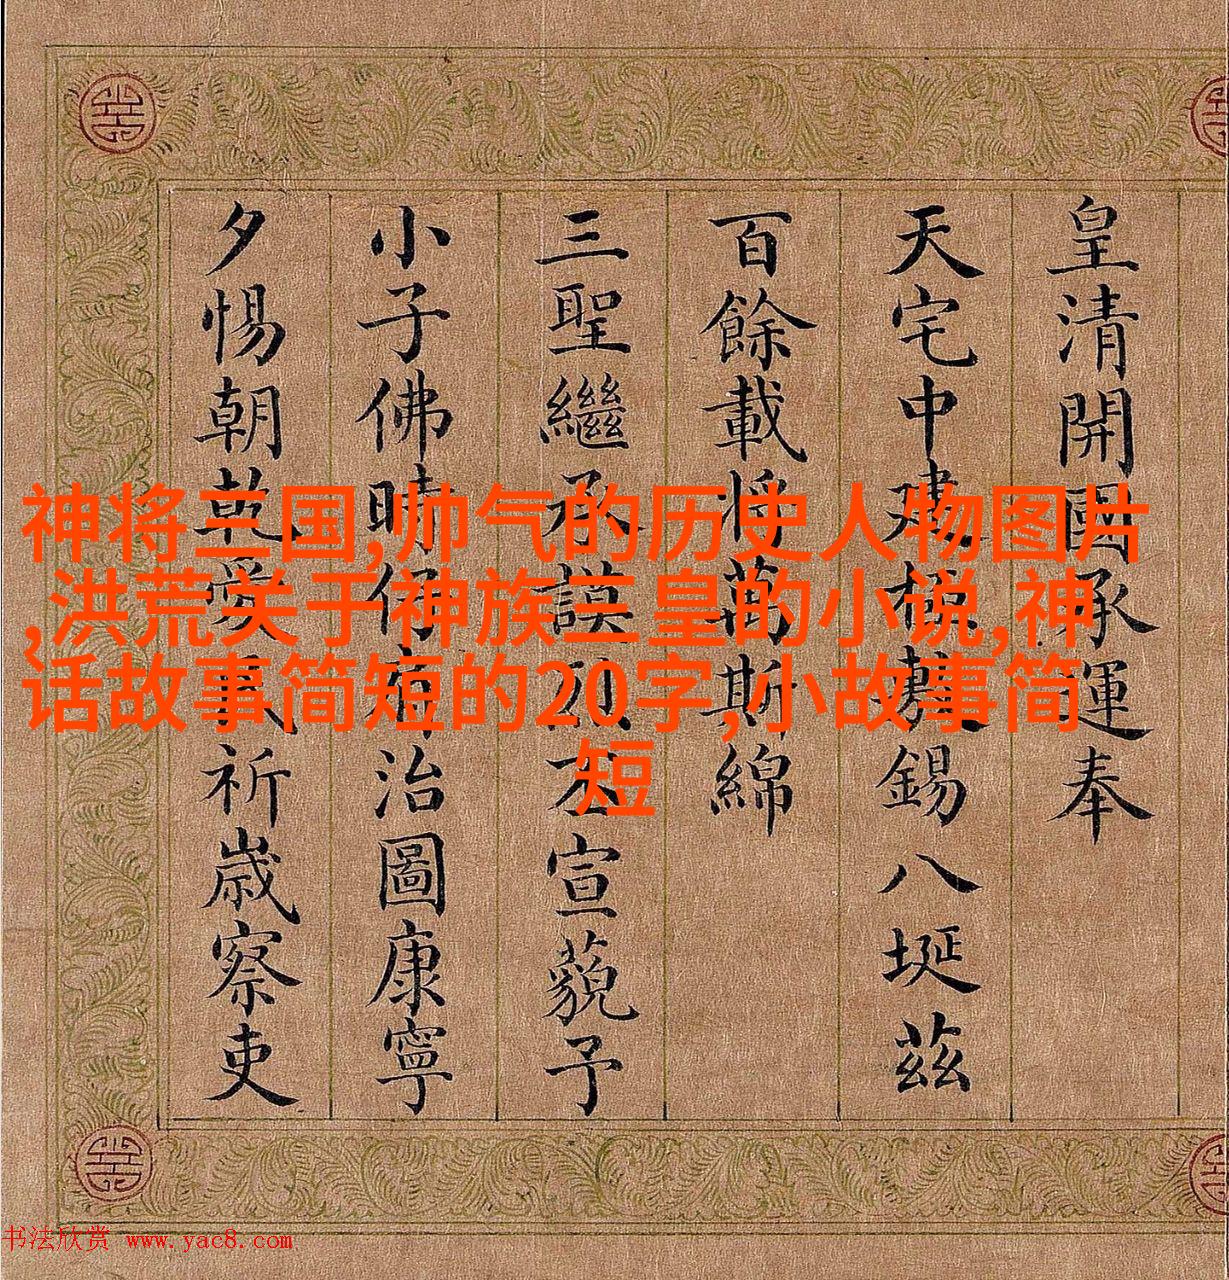 皇清開國承運奉
天宅中建極敷錫八埏茲
百餘載將萬斯綿
三聖繼承謨烈丕宣藐予
小子佛時仔肩治圖康寧
夕惕朝乾愛民祈歲察吏
神将三国,帅气的历史人物图片
,洪荒关于神族三皇的小说,神
话故事简短的20字,小故事简
短
书法欣赏 www.yac8.com